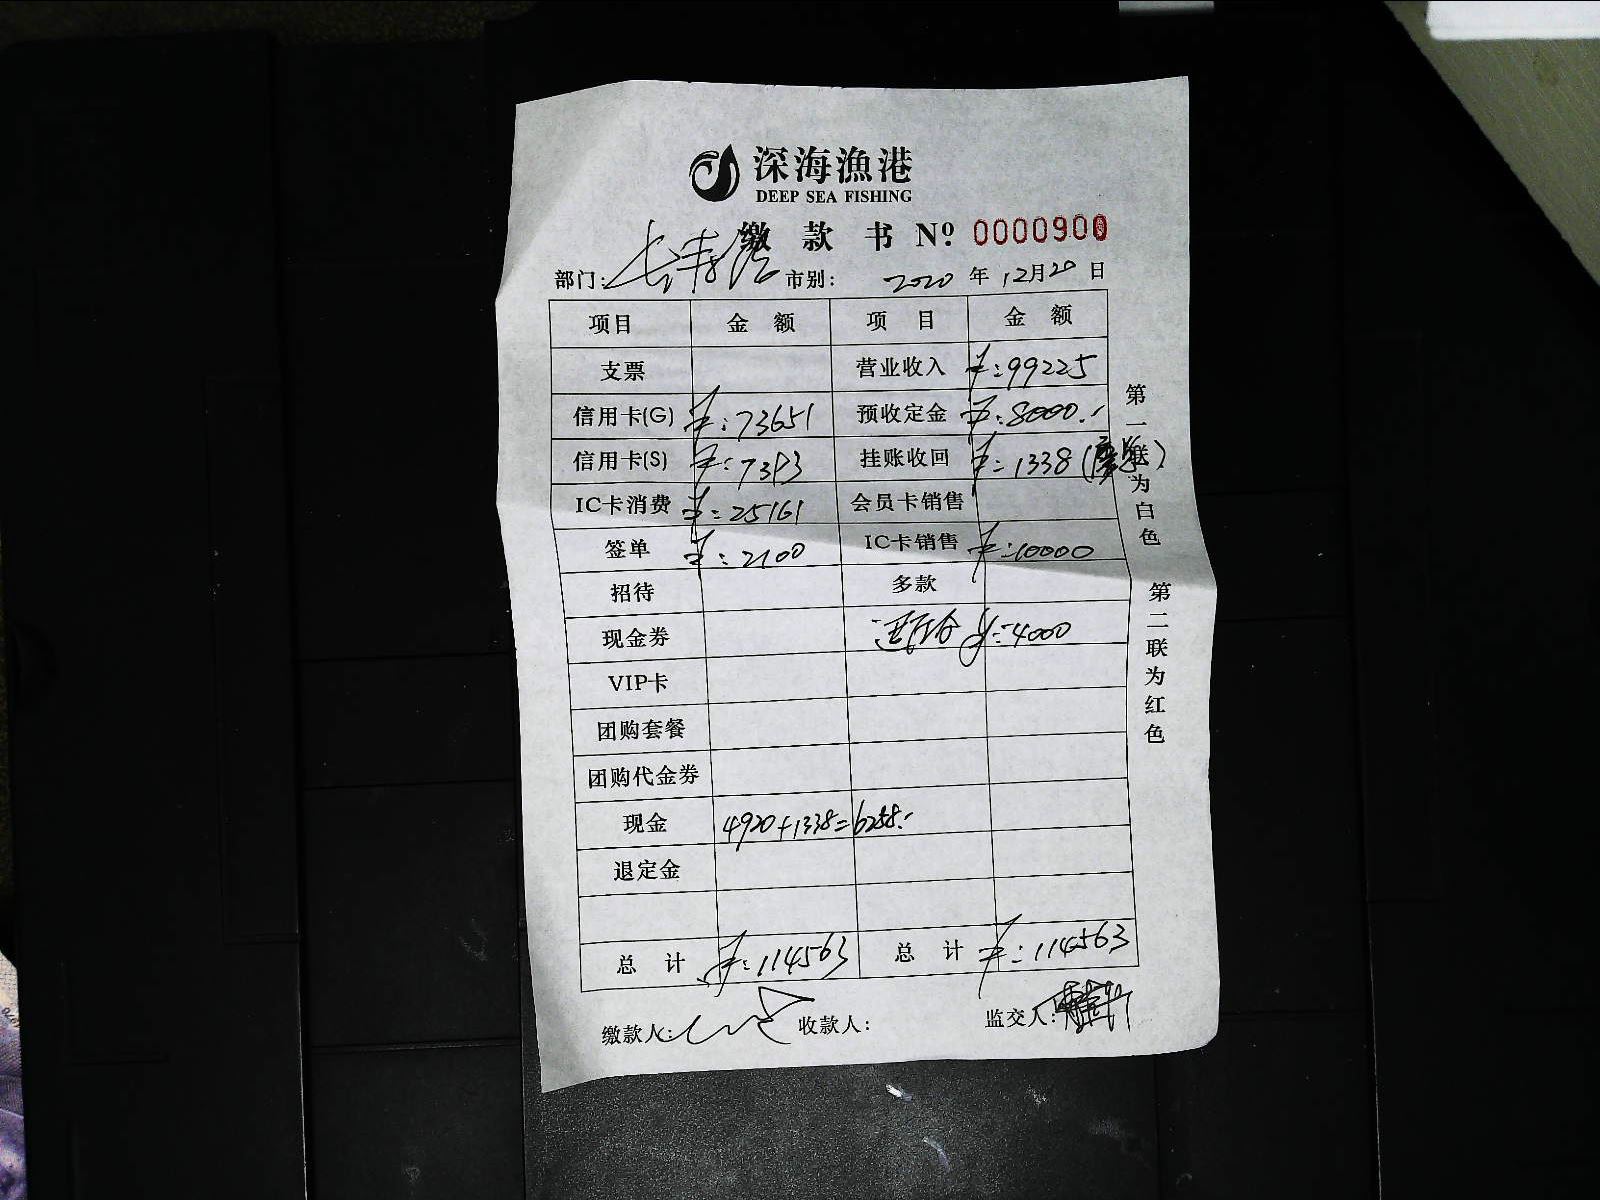 深海漁港
DEEP SEA FISHING
缴款书 Nº: 0000900
部门: 市别: 2020 年 12月20 日
项目 金额 项目 金额
支票 营业收入 ¥:99225
信用卡(G) ¥:73651 预收定金 ¥:8000.-
信用卡(S) ¥:7393 挂账收回 ¥:1338
IC卡消费 ¥:25161 会员卡销售
签单 ¥:2100 IC卡销售 ¥:10000
招待 多款
现金券 ¥:4000
VIP卡
团购套餐
团购代金券
现金 4920+1338=6258.-
退定金
总计 ¥:114563 总计 ¥:114563
缴款人: 收款人: 监交人:
第一联为白色 第二联为红色